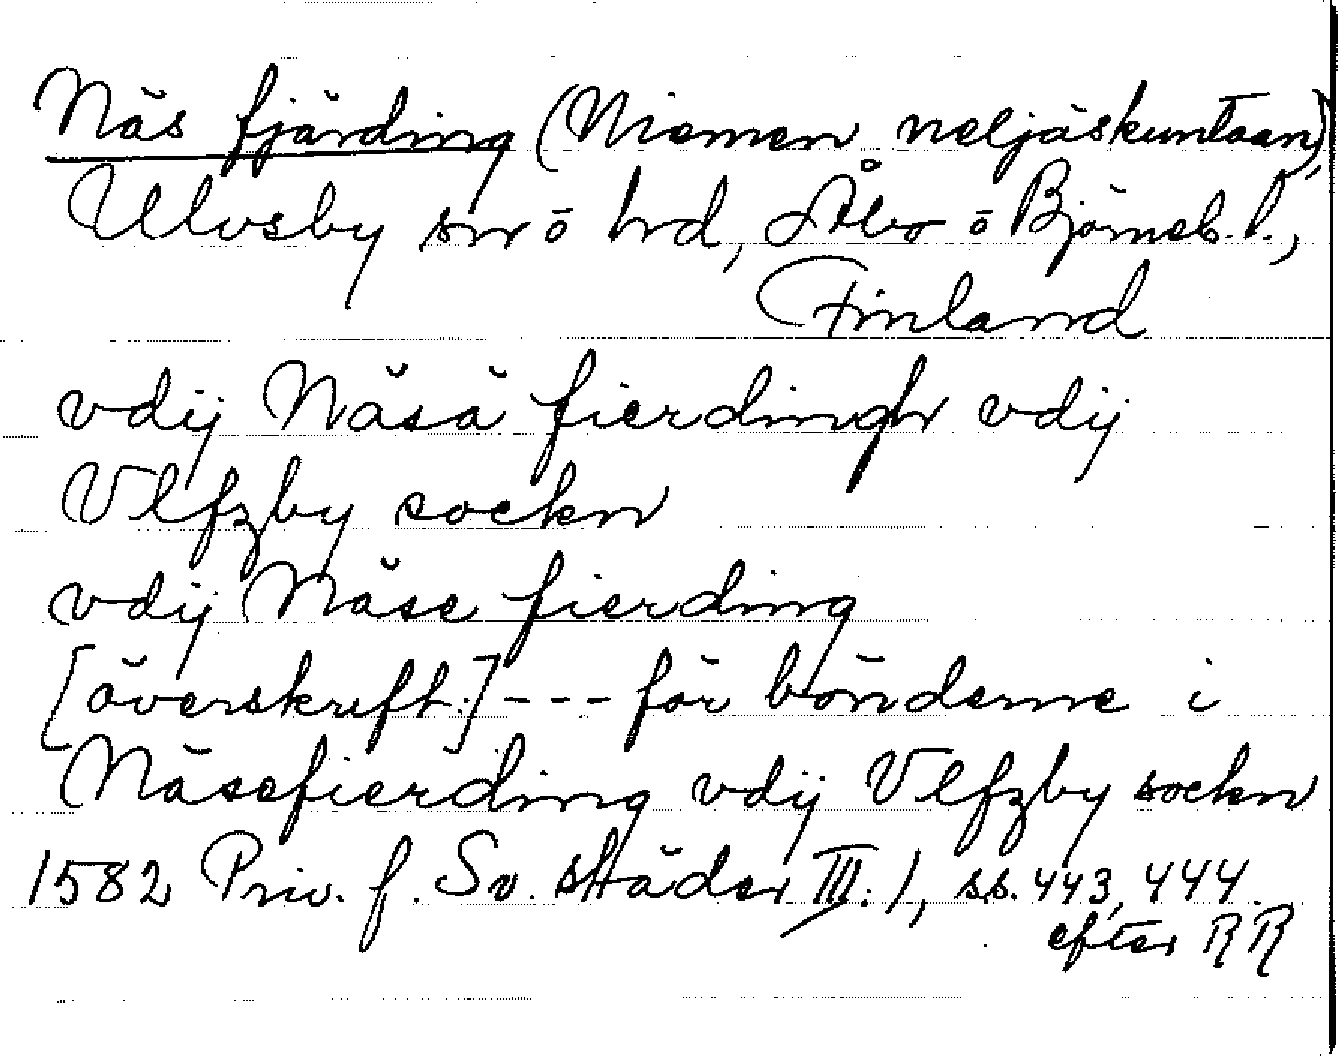 Näs fjärding (Niemen neljäskuntaan),
Ulvsby sn ö hd, Åbo ö Björneb. l.,
Finland
vdij Näsä fierdingh vdij
Vlfzby sockn
vdij Näse fierding
[överskrift:] --- för bönderne i
Näsefierding vdij Vlfzby sockn
1582 Priv. f. Sv. städer III:1, ss. 443, 444.
efter RR